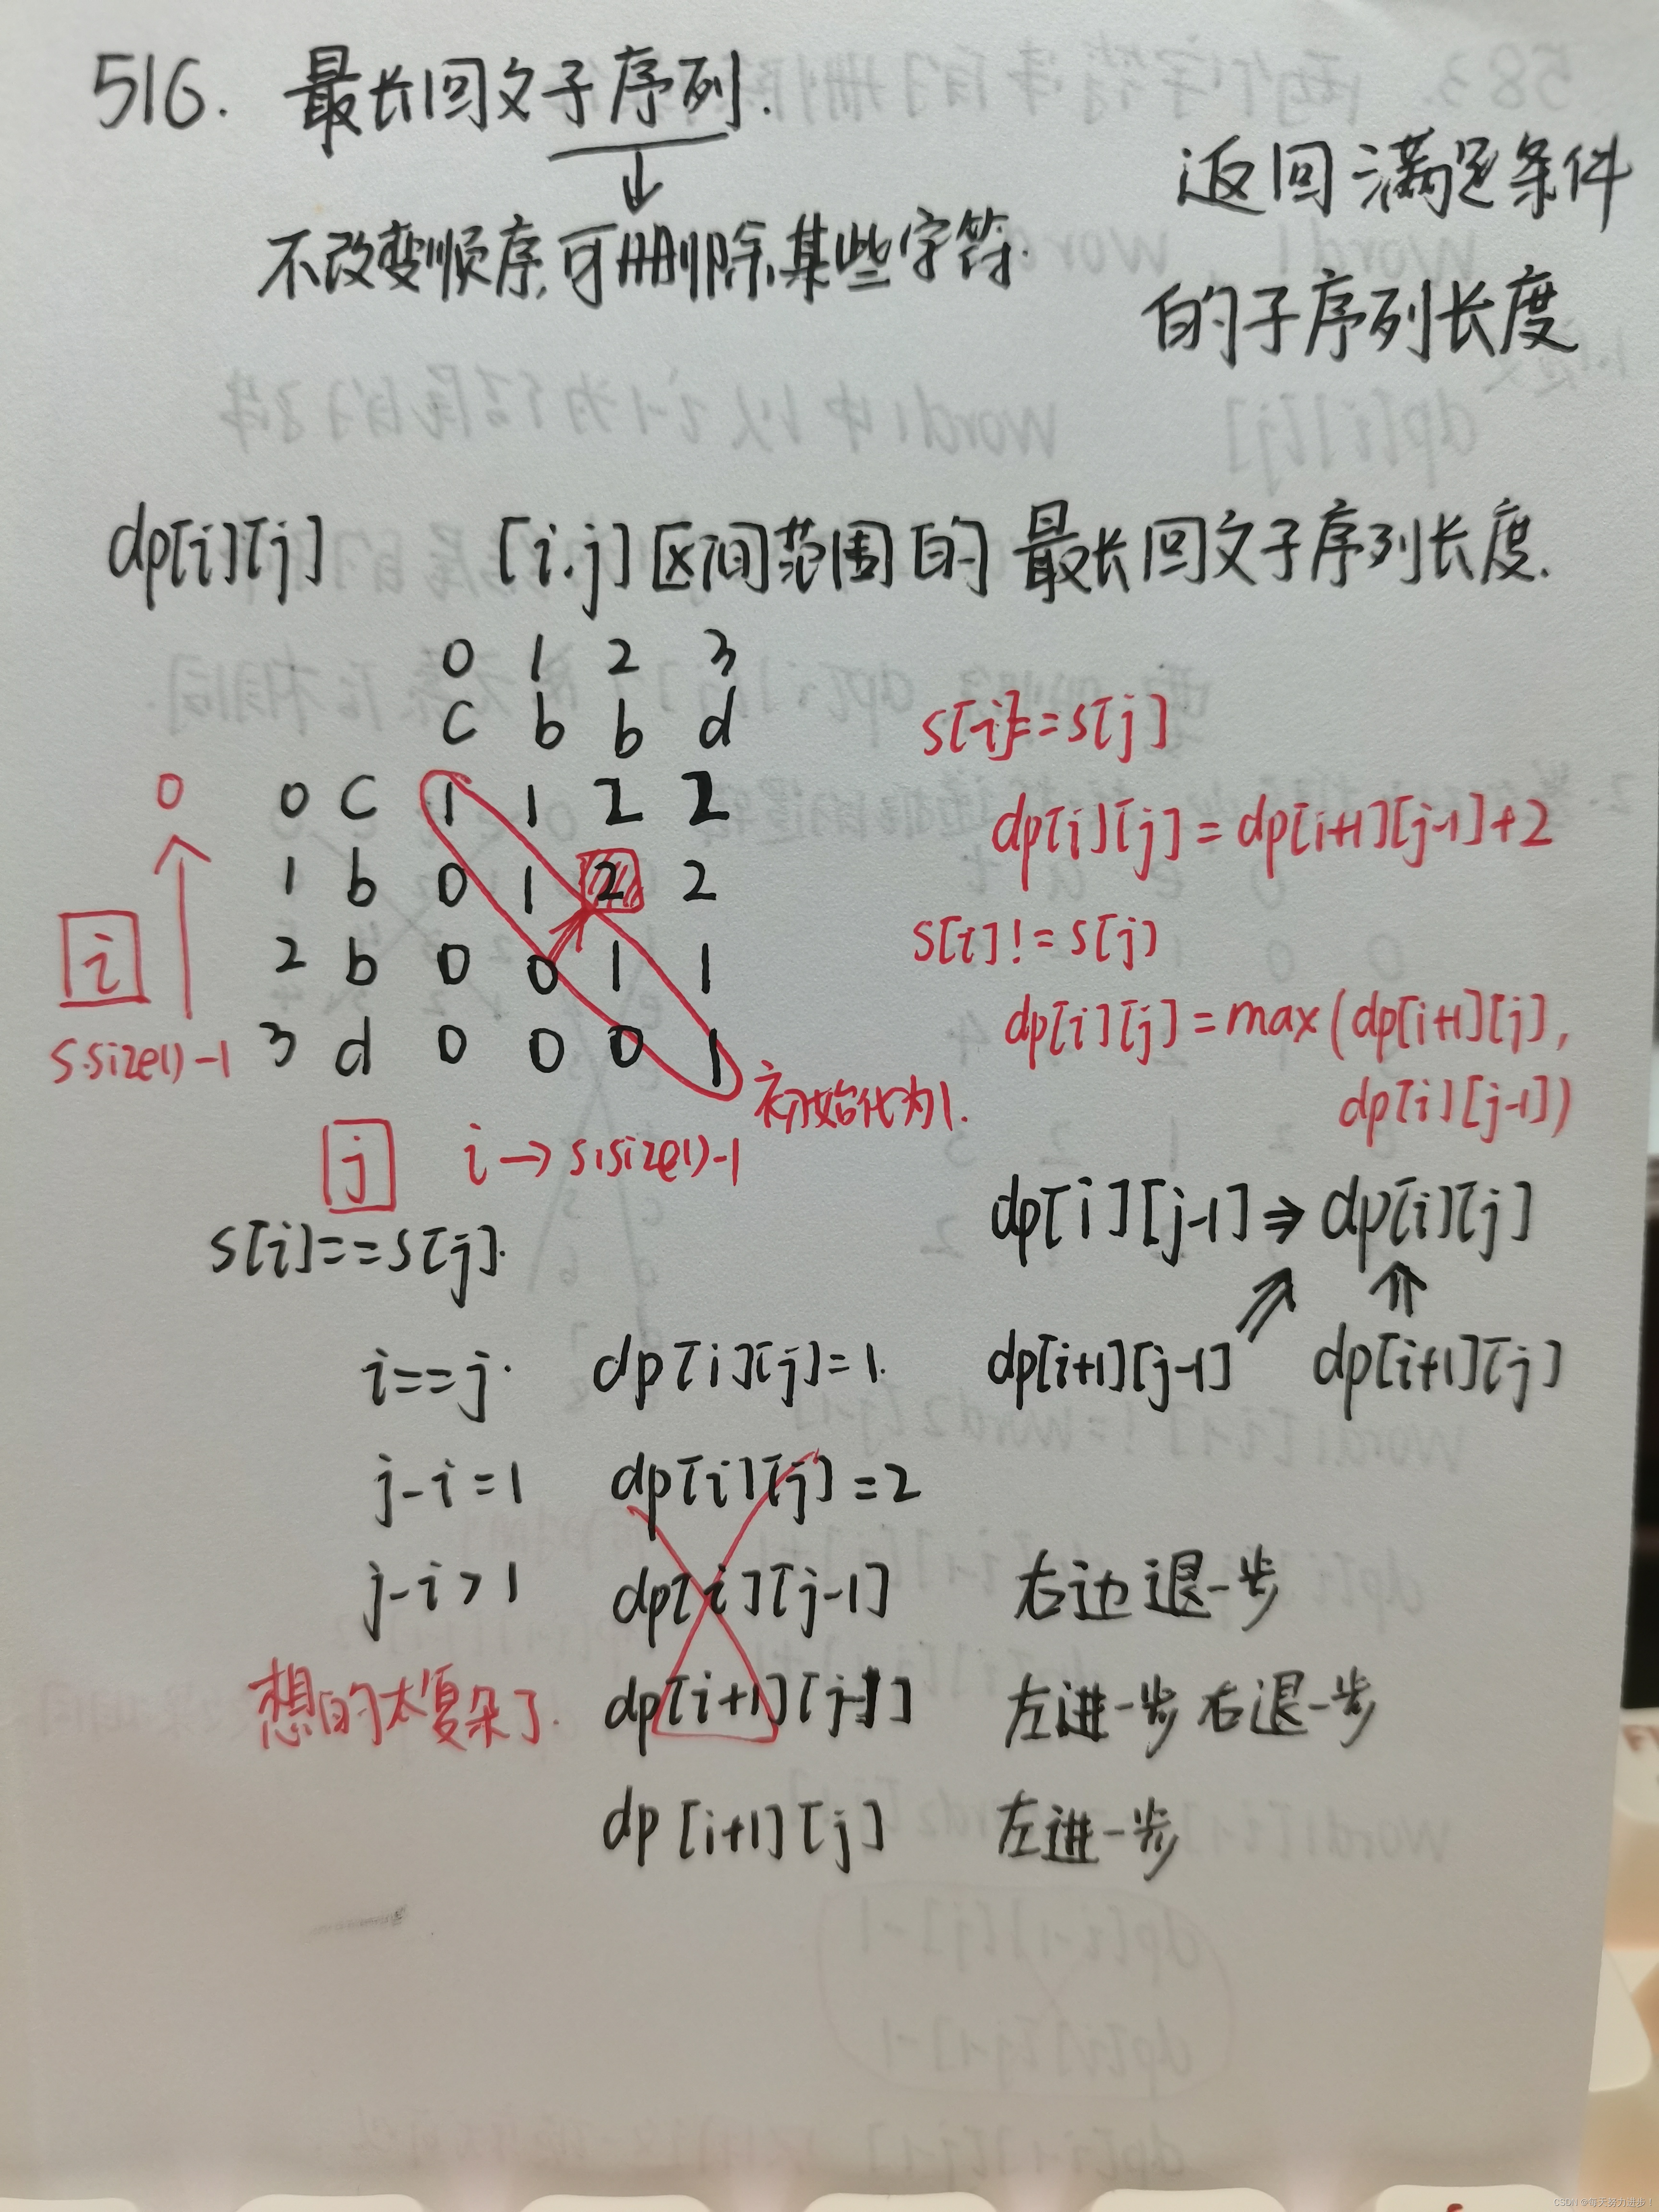 516. 最长回文子序列.
不改变顺序,可删除某些字符.
返回满足条件
的子序列长度
dp[i][j] [i.j]区间范围的最长回文子序列长度.
0 1 2 3
c b b d
0 0 c 1 1 2 2
1 b 0 1 2 2
i 2 b 0 0 1 1
s.size()-1 3 d 0 0 0 1
初始化为1.
j i → s.size()-1
s[i]==s[j]
dp[i][j]=dp[i+1][j-1]+2
s[i]!=s[j]
dp[i][j]=max(dp[i+1][j],
dp[i][j-1])
dp[i][j-1] ⇒ dp[i][j]
dp[i+1][j-1] dp[i+1][j]
s[i]==s[j].
i==j. dp[i][j]=1.
j-i=1 dp[i][j]=2
j-i>1 dp[i][j-1] 右边退一步
想的太复杂了. dp[i+1][j-1] 左进一步 右退一步
dp[i+1][j] 左进一步
CSDN @每天努力进步!